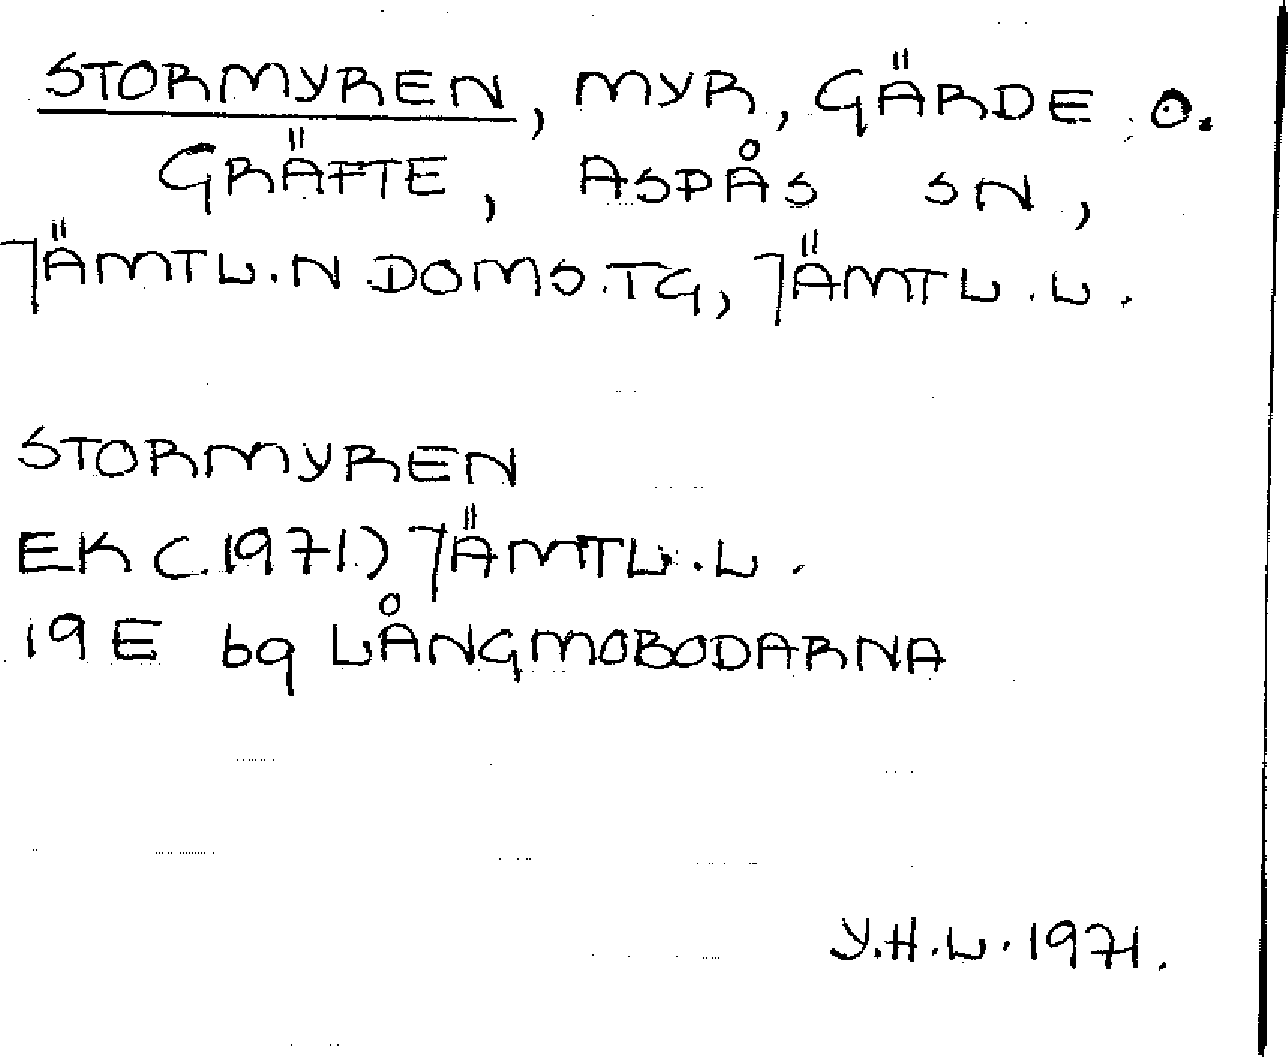 STORMYREN, MYR, GÄRDE O.
GRÄFTE, ASPÅS SN,
JÄMTL.N DOMS.TG, JÄMTL.L.
STORMYREN
EK (1971) JÄMTL.L.
19E 6g LÅNGMOBODARNA
Y.H.L. 1971.